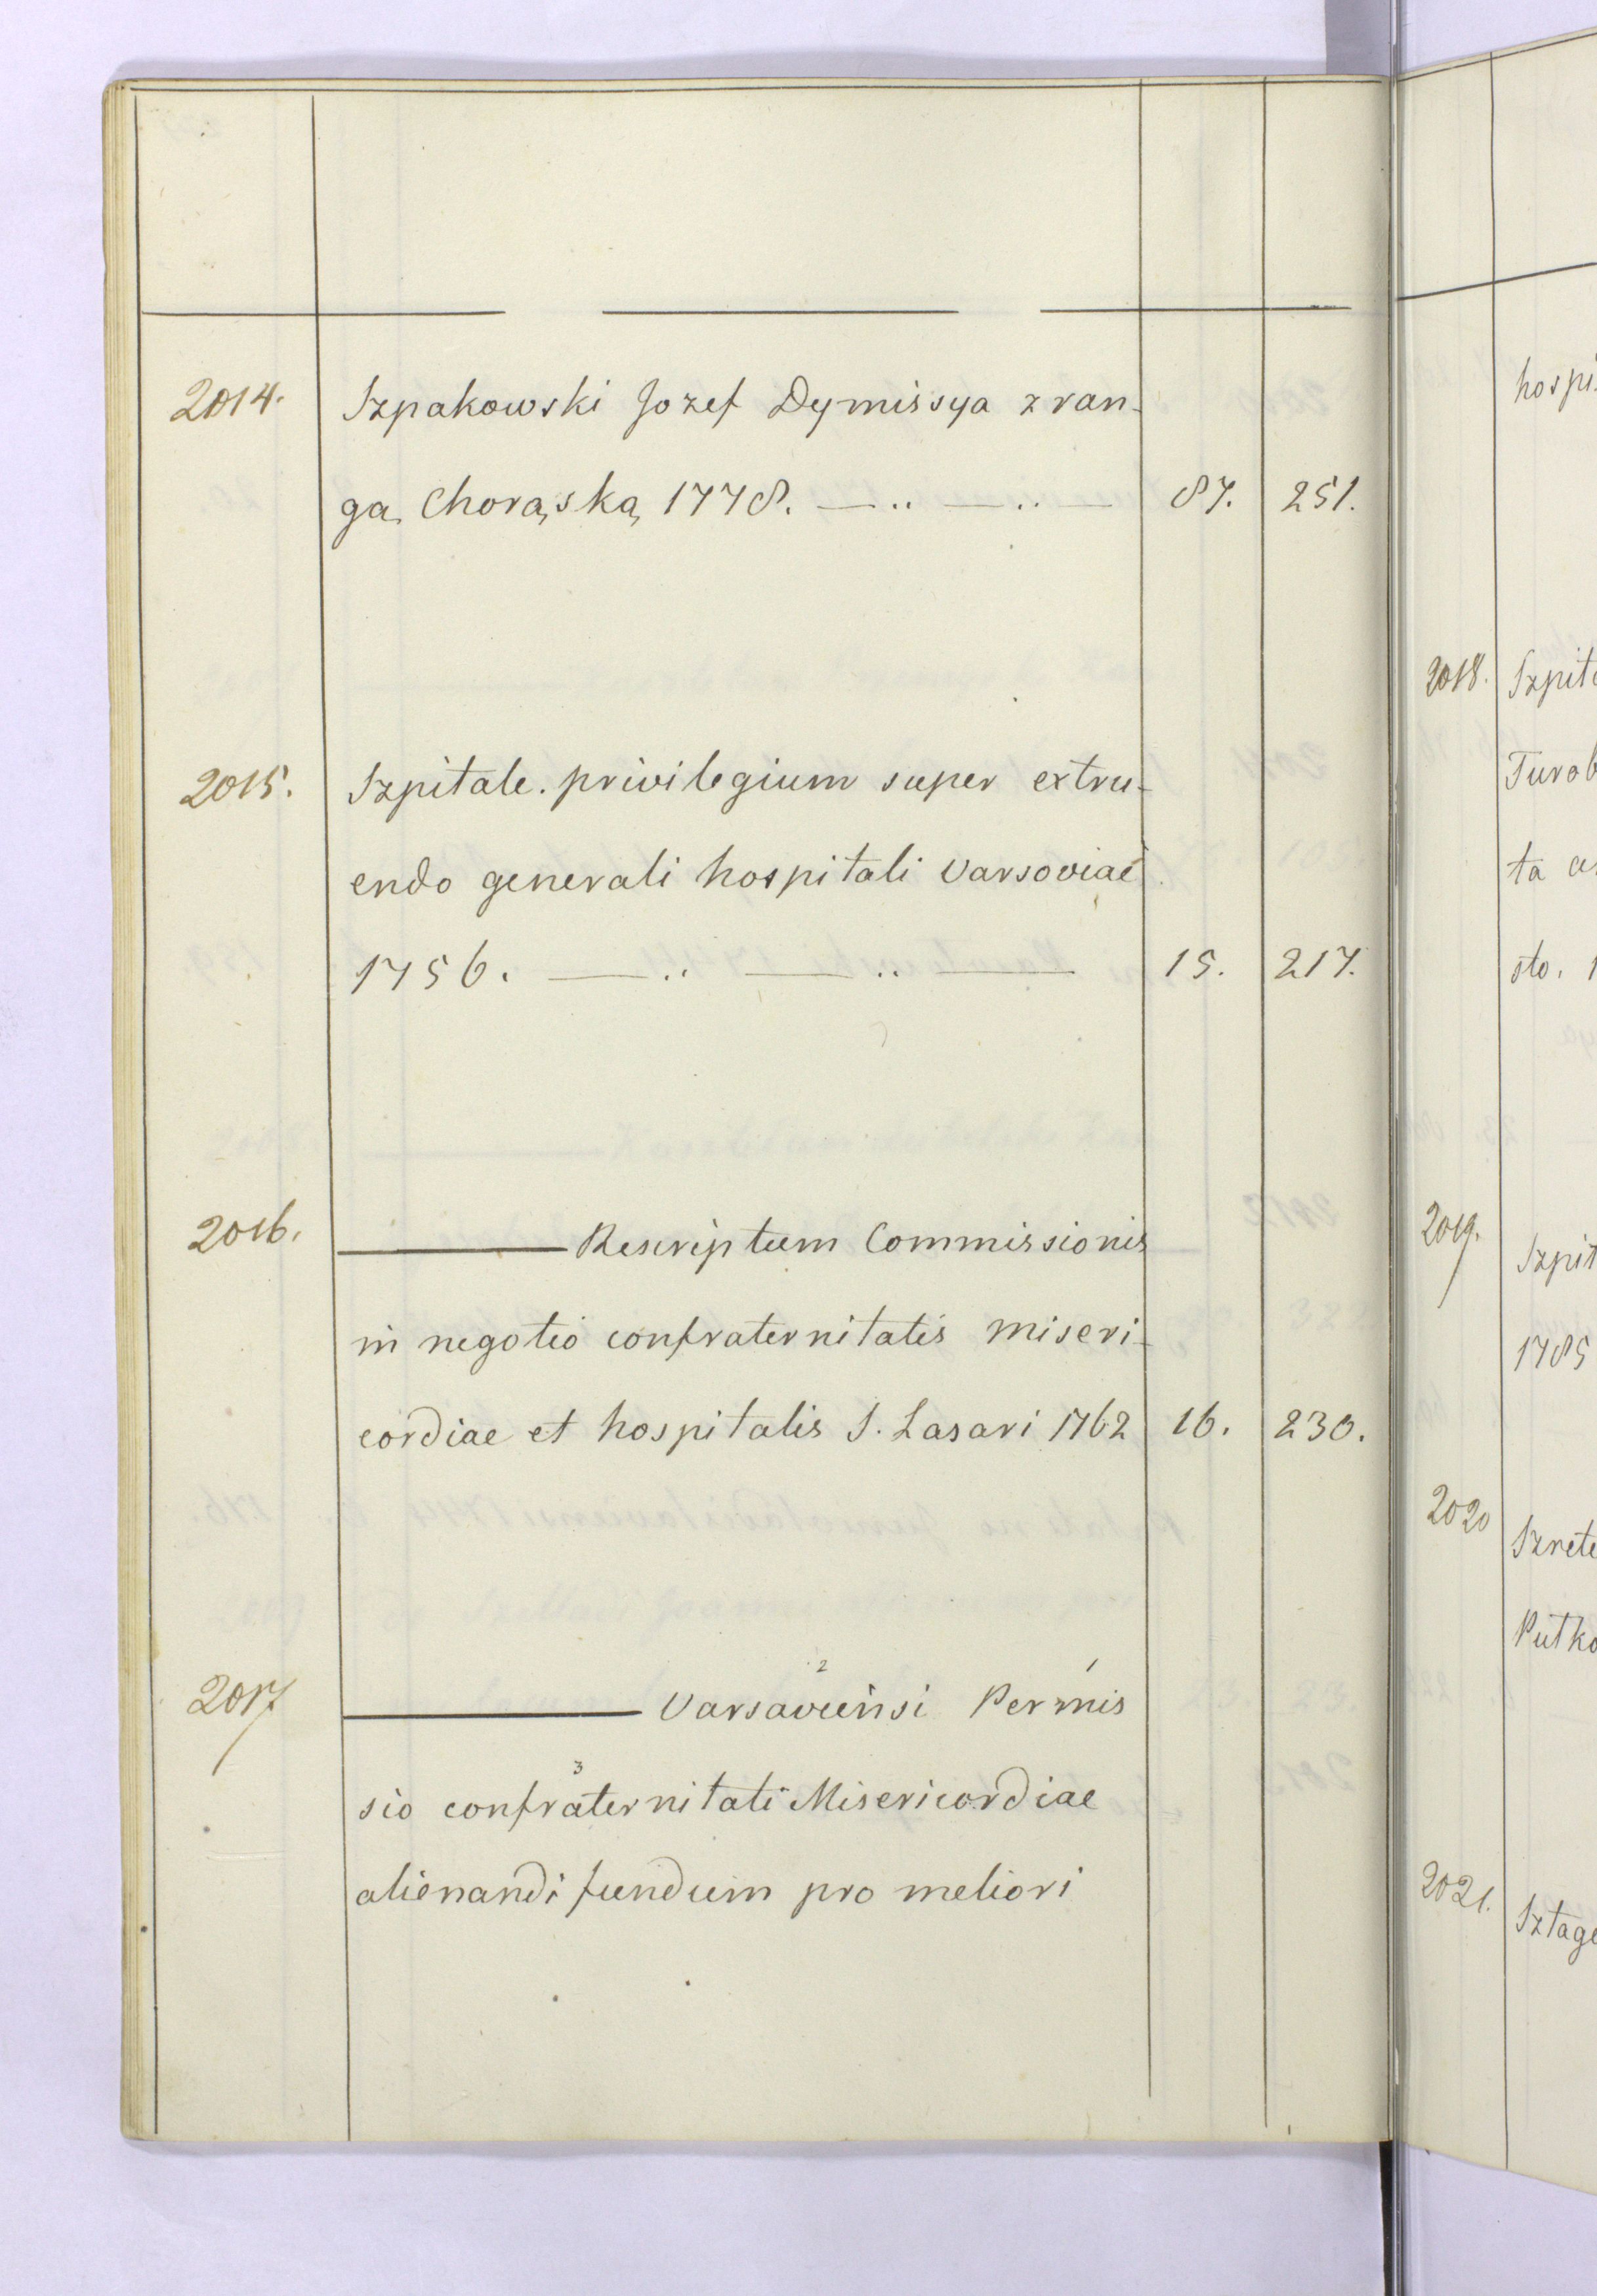 2014. Szpakowski Jozef Dymissya z ran-
gą Chorąską 1778. —.. —.. — 87. 251.
2015. Szpitale. privilegium super extru-
endo generali hospitali Varsoviae
1756. —.. —.. — 15. 217.
2016. ——— Rescriptum Commissionis
in negotio confraternitatis miseri-
cordiae et hospitalis S. Lasari 1762 16. 230.
2 1
2017 ——— Varsaviensi Permis
3
sio confraternitati Misericordiae
alienandi fundum pro meliori
hospi
2018. Szpit
Turob
ta
sto. 1
2019. Szpit
1785
2020 Szrete
Putko
2021. Sztage